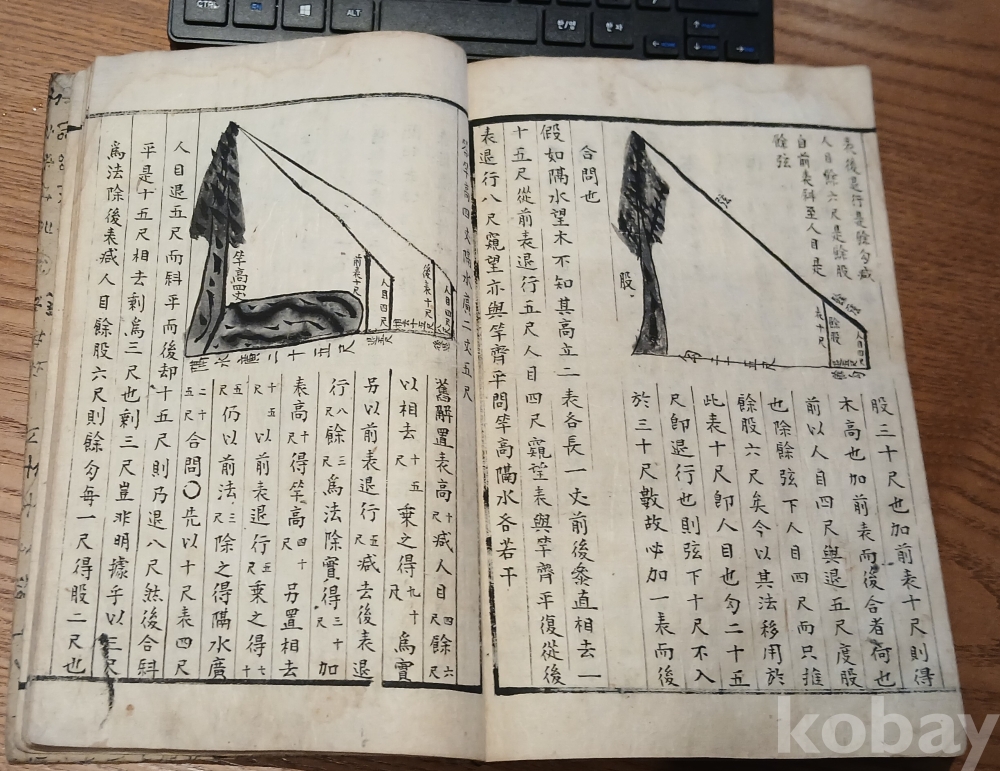 CTRL
ALT
한/영
한자
表後是行是餘勾减
人目餘六尺是餘股
自前表斜至人目是
餘弦
弦
股
餘弦
餘股
表十尺
人目四尺
勾二十五尺
股三十尺也加前表十尺則得
木高也加前表而後合者何也
前以人目四尺與退五尺度股
也除餘弦下人目四尺而只推
餘股六尺矣今以其法移用於
此表十尺卽人目也勾二十五
尺卽退行也則弦下十尺不入
於三十尺數故必加一表而後
合問也
假如隔水望木不知其高立二表各長一丈前後參直相去一
十五尺從前表退行五尺人目四尺窺望表與竿齊平復從後
表退行八尺窺望亦與竿齊平問竿高隔水各若干
答竿高四丈隔水廣二丈五尺
竿高四丈
前表十尺
人目四尺
後表十尺
人目四尺
隔水廣二十五尺
舊解置表高十尺减人目四尺餘六尺
以相去十五尺乘之得九十尺爲實
另以前表退行五尺减去後表退
行八尺餘三尺爲法除實得三十尺加
表高十尺得竿高四十尺另置相去
十五尺以前表退行五尺乘之得七十
五尺仍以前法三尺除之得隔水廣
二十五尺合問○先以十尺表四尺
人目退五尺而斜平而後却十五尺則乃退八尺然後合斜
平是十五尺相去剩爲三尺也剩三尺豈非明據乎以三尺
爲法除後表减人目餘股六尺則餘勾每一尺得股二尺也
kobay